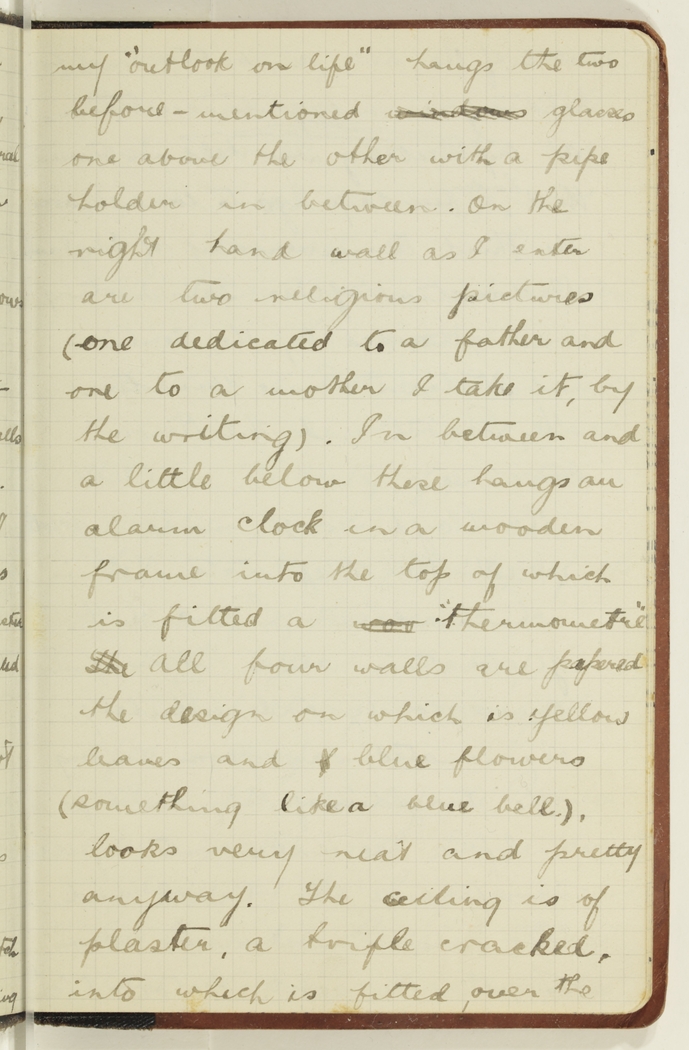 my "outlook on life" hangs the two
before-mentioned windows glasses
one above the other with a pipe
holder in between. On the
right hand wall as I enter
are two religious pictures
(one dedicated to a father and
one to a mother I take it, by
the writing). In between and
a little below these hangs an
alarm clock in a wooden
frame into the top of which
is fitted a "thermometre"
The All four walls are papered
the design on which is yellow
leaves and blue flowers
(something like a blue bell.),
looks very neat and pretty
anyway. The ceiling is of
plaster, a trifle cracked,
into which is fitted, over the